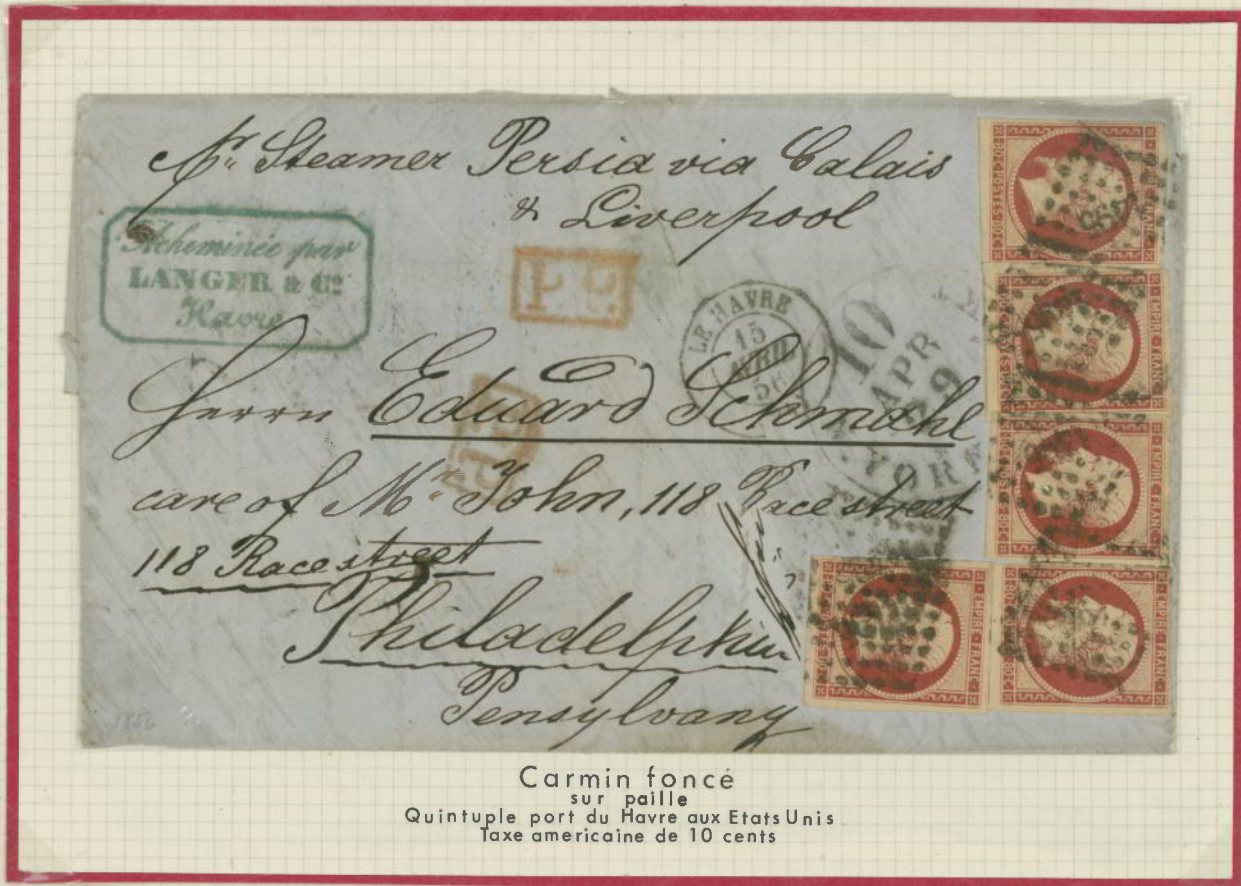 pr. Steamer Persia via Calais
& Liverpool
Acheminée par
LANGER & Co
Havre
P.P.
LE HAVRE
15
AVRIL
56
10
APR
29
YORK
Herrn Eduard Schmahl
care of Mr. John, 118 Race street
118 Race street
Philadelphia
Pensylvany
1856
EMPIRE FRANC
EMPIRE FRANC
EMPIRE FRANC
EMPIRE FRANC
EMPIRE FRANC
Carmin foncé
sur paille
Quintuple port du Havre aux Etats Unis
Taxe americaine de 10 cents